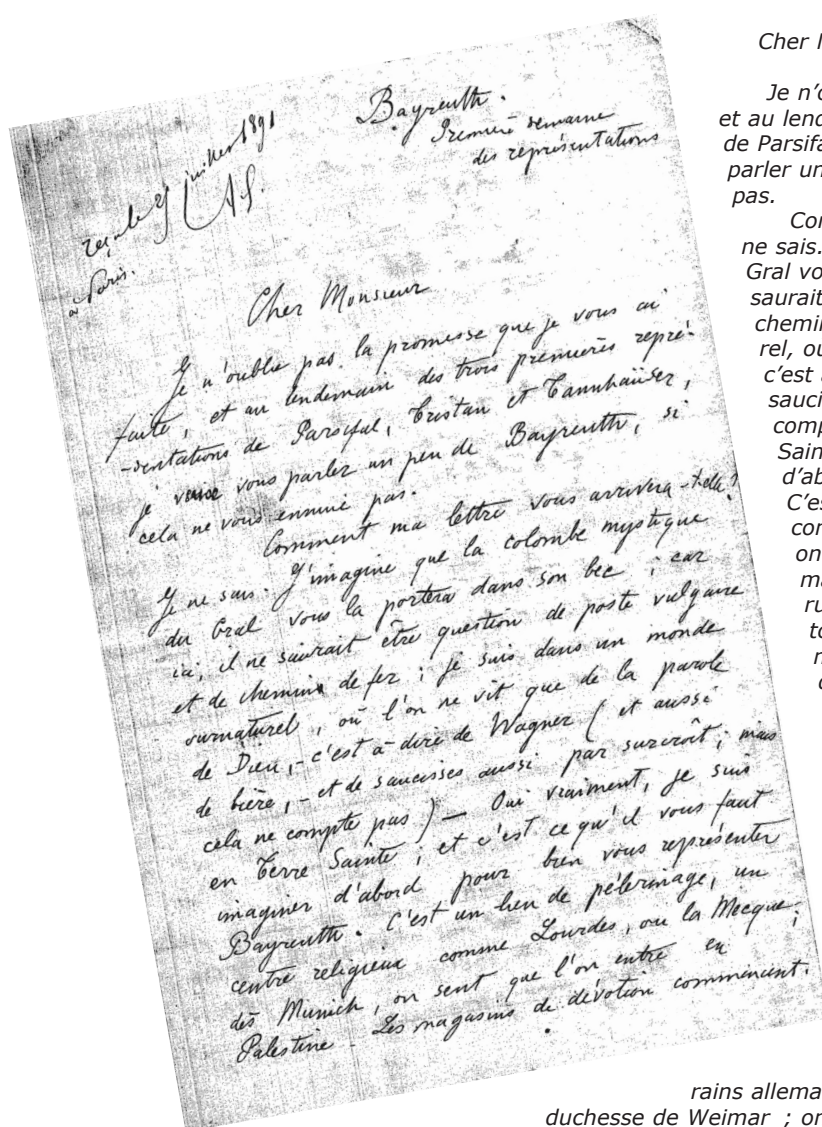 Bayreuth.
Première semaine
des représentations
reçu le 25 juillet 1891
à Paris.
Cher Monsieur
Je n'oublie pas la promesse que je vous ai
faite, et au lendemain des trois premières repré-
-sentations de Parsifal, Tristan et Tannhaüser,
je veux vous parler un peu de Bayreuth, si
cela ne vous ennuie pas.
Comment ma lettre vous arrivera-t-elle?
Je ne sais. J'imagine que la colombe mystique
du Gral vous la portera dans son bec ; car
ici, il ne saurait être question de poste vulgaire
et de chemins de fer ; je suis dans un monde
surnaturel, où l'on ne vit que de la parole
de Dieu, - c'est à-dire de Wagner (et aussi
de bière, - et de saucisses aussi par surcroît ; mais
cela ne compte pas) — Oui vraiment, je suis
en Terre Sainte ; et c'est ce qu'il vous faut
imaginer d'abord pour bien vous représenter
Bayreuth. C'est un lieu de pélerinage, un
centre religieux comme Lourdes, ou la Mecque ;
dès Munich, on sent que l'on entre en
Palestine - Les magasins de dévotion commencent.
Cher
Je n'
et au
de
parler
pas.
ne sais.
Gral
saurait
chemin
c'est
d'ab
C'es
on
rains
duchesse de Weimar ; on